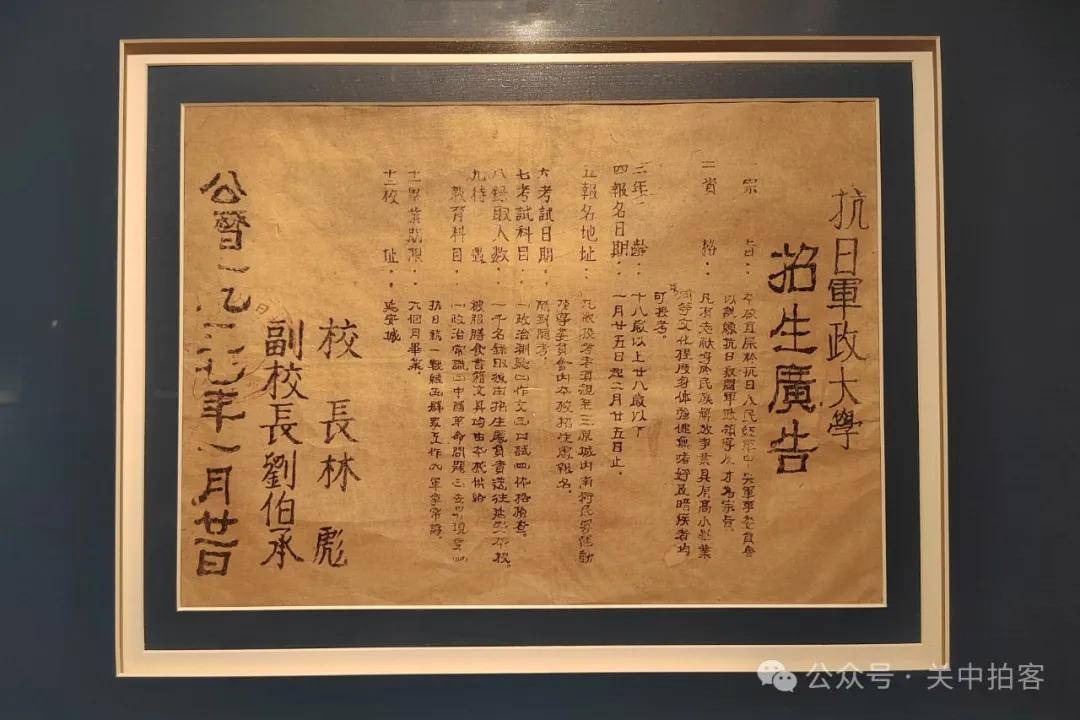 抗日軍政大學
招生廣告
一宗 旨：本校直屬於抗日人民紅軍中央軍事委員會
以訓練抗日救國軍政領導人才為宗旨。
二資 格：凡有志献身於民族解放事業具有高小畢業
同等文化程度身体強健無嗜好及暗疾者均
可投考。
三年 齡：十八歲以上廿八歲以下
四報名日期：一月廿五日起二月廿五日止。
五報名地址：凡欲投考者須親至三原城内南街民眾運動
指導委員會内本校招生處報名。
六考試日期：隨到隨考。
七考試科目：一政治測驗二作文三口試四体格檢查。
八錄取人數：一千名錄取後由招生處負責送往延安本校。
九待 遇：被服膳食書籍文具均由本校供給
教育科目：一政治常識二中國革命問題三
抗日統一戰線五群眾工作六軍事常識。
十一畢業期限：六個月畢業。
十二校 址：延安城
校長林 彪
副校長劉伯承
公曆一九三七年一月廿一日
公众号·关中拍客